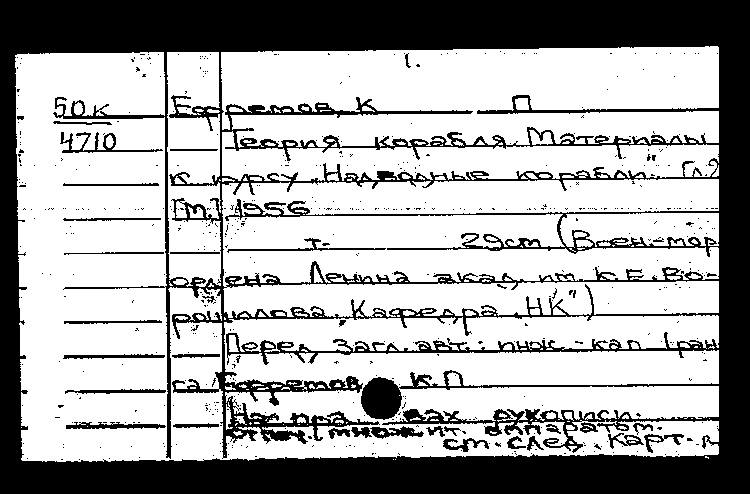 1.
50к Ефремов, К П
4710 Теория корабля. Материалы
к курсу "Надводные корабли". Гл.9
[М.], 1956
т- 29см. (Воен-мор
ордена Ленина акад. им. К.Е.Во-
рошилова, Кафедра "НК")
Перед загл. авт.: инж.-кап 1 ран-
га Ефремов К.П
На пра вах рукописи.
Отпеч. множит. аппаратом.
см. след. карт.